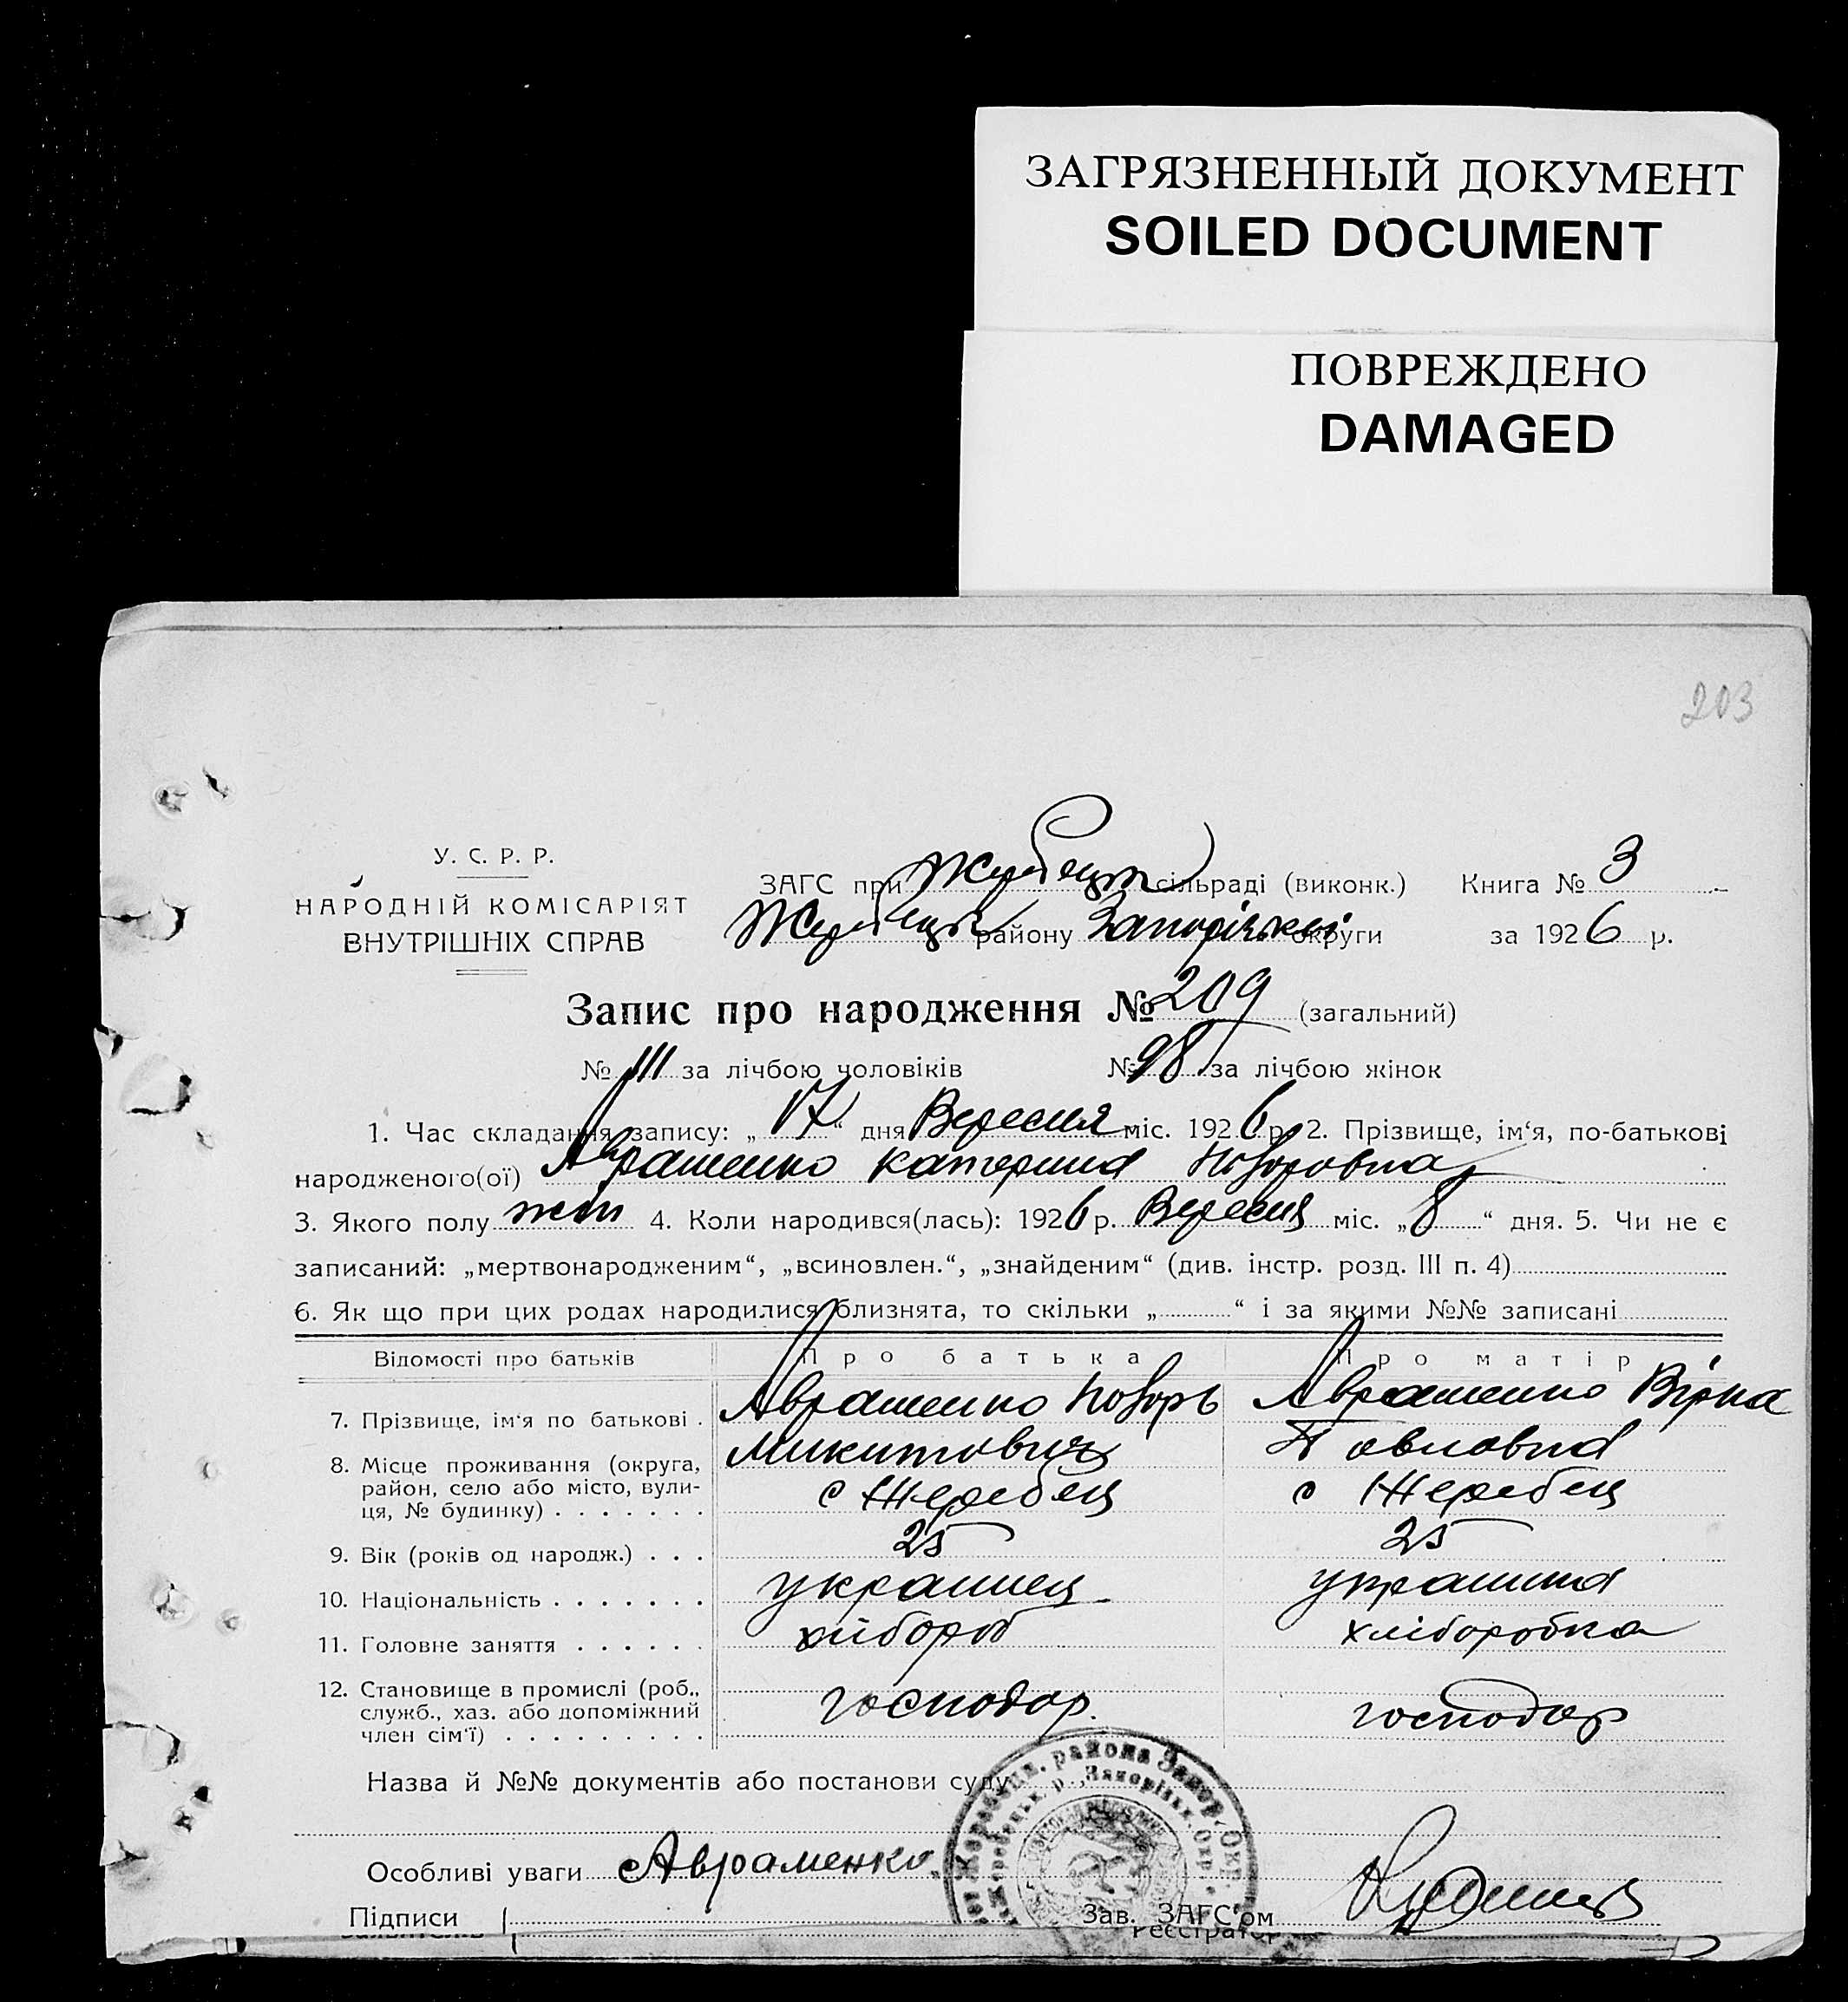 ЗАГРЯЗНЕННЫЙ ДОКУМЕНТ
SOILED DOCUMENT
ПОВРЕЖДЕНО
DAMAGED
203
У. С. Р. Р.
НАРОДНІЙ КОМІСАРІЯТ
ВНУТРІШНІХ СПРАВ
ЗАГС при Жеребецьк сільраді (виконк.) Книга № 3
Жеребецьк району Запорізької округи за 1926 р.
Запис про народження № 209 (загальний)
№ 111 за лічбою чоловіків № 98 за лічбою жінок
1. Час складання запису: „17“ дня Вересня міс. 1926 р. 2. Прізвище, ім‘я, по-батькові
народженого(ої) Авраменко Катерина
3. Якого полу жін 4. Коли народився(лась): 1926 р. Вересня міс. „8“ дня. 5. Чи не є
записаний: „мертвонародженим“, „всиновлен.“, „знайденим“ (див. інстр. розд. III п. 4)
6. Як що при цих родах народилися близнята, то скільки „ “ і за якими №№ записані
Відомості про батьків Про батька Про матір
7. Прізвище, ім‘я по батькові . Авраменко Авраменко Вірка
Микитович Павловна
8. Місце проживання (округа, район, село або місто, вули-ця, № будинку) . . . . . . . с Жеребец с Жеребец
9. Вік (років од народж.) . . . 25 25
10. Національність . . . . . . . украинец украинка
11. Головне заняття . . . . . . хлібороб хліборобка
12. Становище в промислі (роб., служб., хаз. або допоміжний член сім‘ї) . . . . . . . . . господар. господар
Назва й №№ документів або постанови суду
Особливі уваги Авраменко
Підписи
Зав. ЗАГС‘ом
Реєстратор